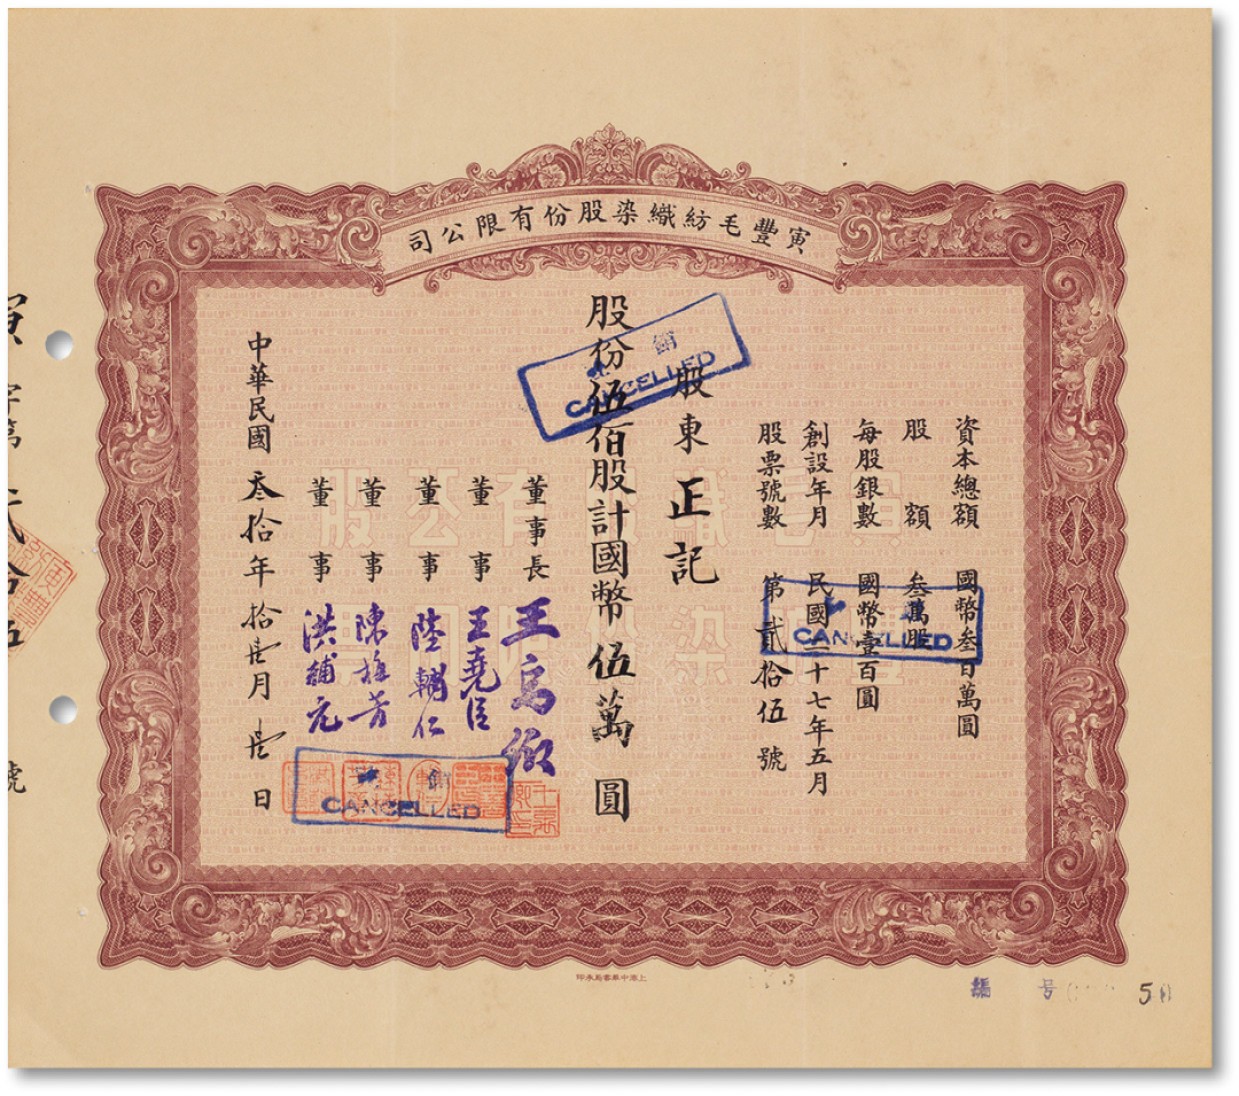 寅豐毛紡織染股份有限公司
資本總額 國幣叁百萬圓
股額 叁萬股
每股銀數 國幣壹百圓
創設年月 民國二十七年五月
股票號數 第貳拾伍號
股東 正記
股份伍佰股計國幣伍萬圓
董事長
董事 王堯臣
董事 陸輔仁
董事 陳梅芳
董事 洪輔元
中華民國叁拾年拾壹月壹日
銷
CANCELLED
CANCELLED
銷
CANCELLED
寅毛織股有公股
豐紡染份限司票
上海中華書局承印
編号
5
號